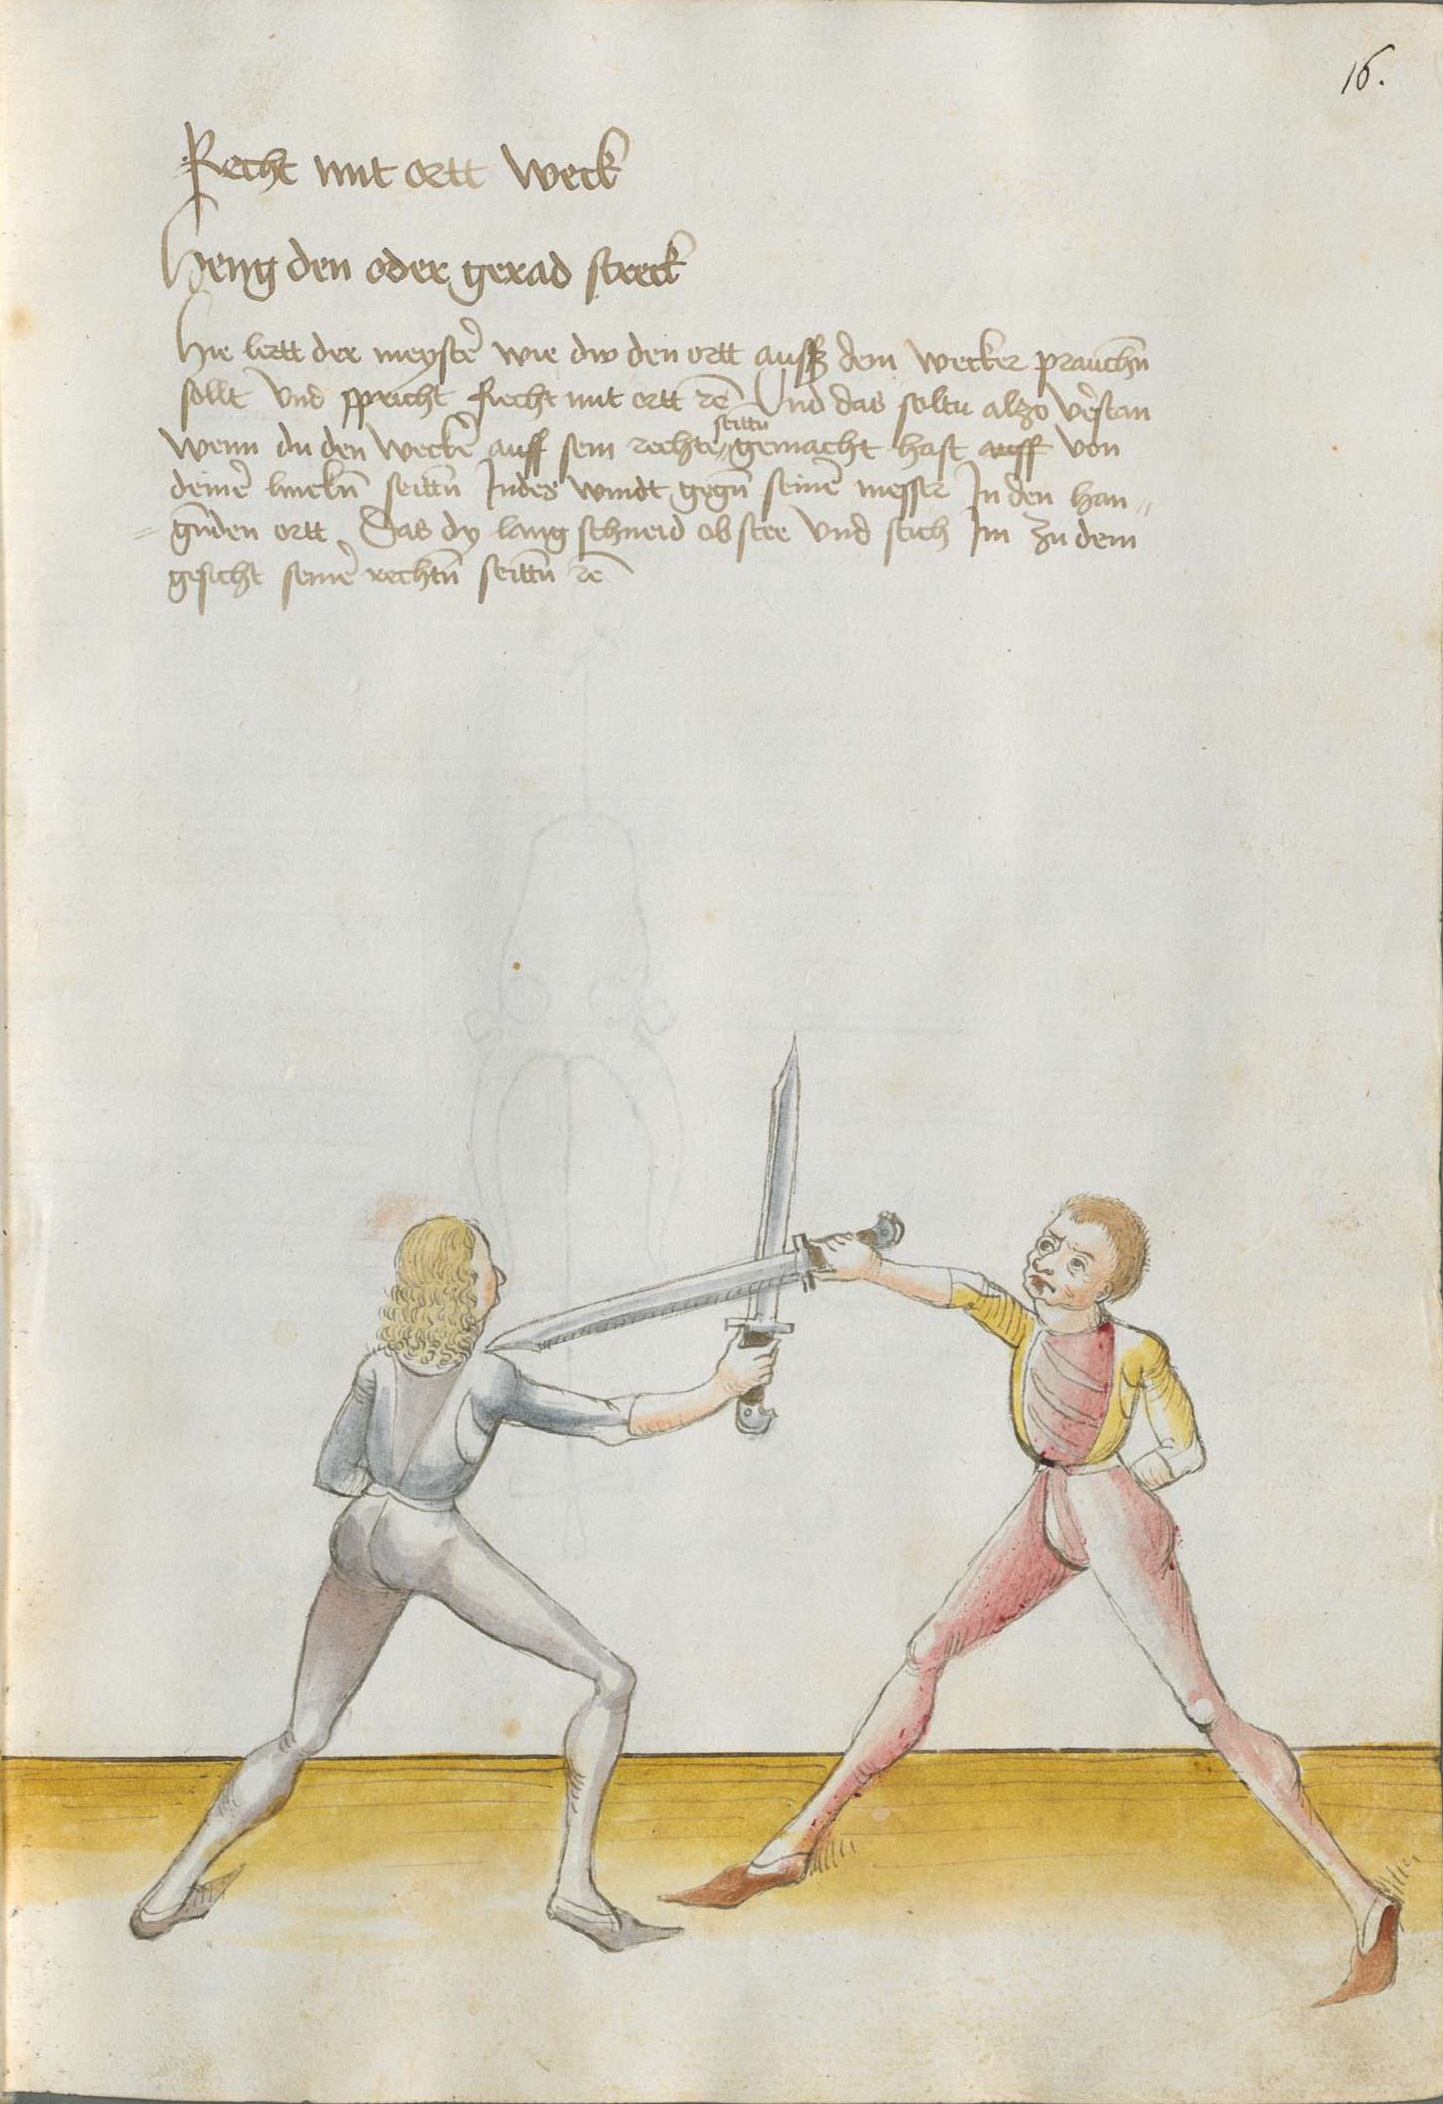 16.
Recht mit ortt weck
Heng den oder gerad streck
Hie lertt der meystẽ wie dw den ortt auss dem wecker prauchñ
sollt Vnd spricht Recht mit ortt ꝛc̃ Vnd das soltu alzo ṽstan
seittñ
wenn du den weckẽ auff sein rechte gemacht hast auff von
deinẽ linckñ seittñ Indes windt gegñ seinẽ messer In den han„
„gñden ortt Das dy lang schneid ob stee Vnd stich Im Zu dem
gesicht seinẽ rechtñ seittñ ꝛc̃